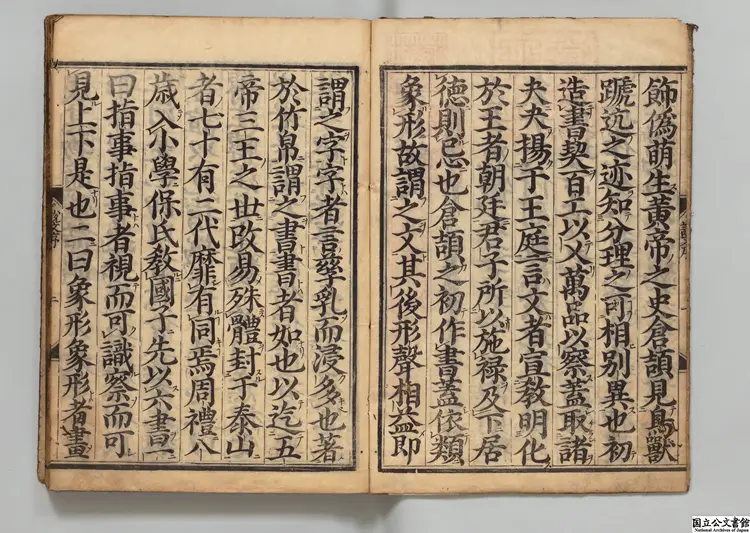 飾偽萌生黄帝之史倉頡見鳥獸
蹏迒之迹知分理之可相別異也初
造書契百工以乂萬品以察蓋取諸
夬夬揚于王庭言文者宣教明化
於王者朝廷君子所以施禄及下居
徳則忌也倉頡之初作書蓋依類
象形故謂之文其後形聲相益即
謂之字字者言孳乳而浸多也著
於竹帛謂之書書者如也以迄五
帝三王之世改易殊體封于泰山
者七十有二代靡有同焉周禮八
歳入小學保氏教國子先以六書一
曰指事指事者視而可識察而可
見上下是也二曰象形象形者畫
国立公文書館
National Archives of Japan